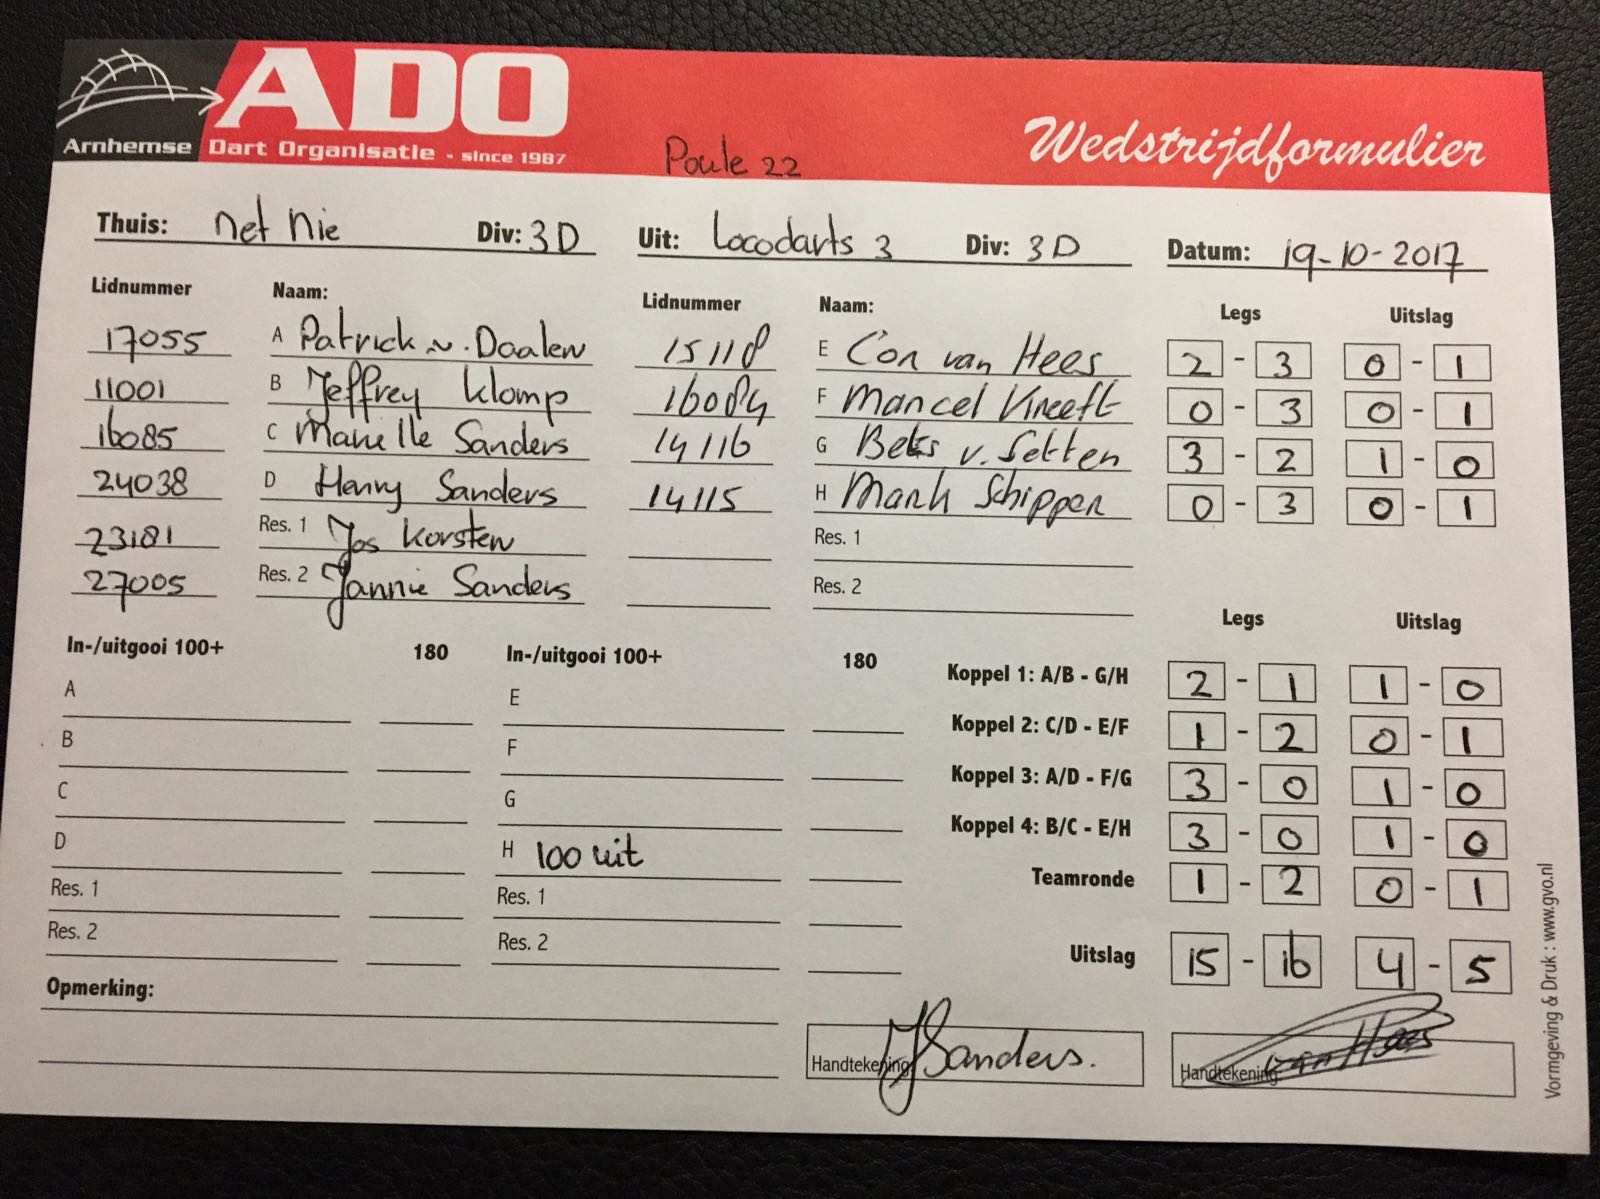 ADO
Arnhemse Dart Organisatie - since 1987
Poule 22
Wedstrijdformulier
Thuis: net nie Div: 3D Uit: Locodarts 3 Div: 3D Datum: 19-10-2017
Lidnummer Naam: Lidnummer Naam: Legs Uitslag
17055 A Patrick v. Daalen 15118 E Con van Hees 2 - 3 0 - 1
11001 B Jeffrey Klomp 16084 F Marcel Kreeft 0 - 3 0 - 1
16085 C Marielle Sanders 14116 G Bets v. Setten 3 - 2 1 - 0
24038 D Henry Sanders 14115 H Mark Schipper 0 - 3 0 - 1
23181 Res. 1 Jos Korsten Res. 1
27005 Res. 2 Jannie Sanders Res. 2
Legs Uitslag
In-/uitgooi 100+ 180 In-/uitgooi 100+ 180
Koppel 1: A/B - G/H 2 - 1 1 - 0
A E
Koppel 2: C/D - E/F 1 - 2 0 - 1
B F
Koppel 3: A/D - F/G 3 - 0 1 - 0
C G
Koppel 4: B/C - E/H 3 - 0 1 - 0
D H 100 uit
Teamronde 1 - 2 0 - 1
Res. 1 Res. 1
Res. 2 Res. 2
Uitslag 15 - 16 4 - 5
Opmerking:
Handtekening JSanders. Handtekening van Hees
Vormgeving & Druk : www.gvo.nl